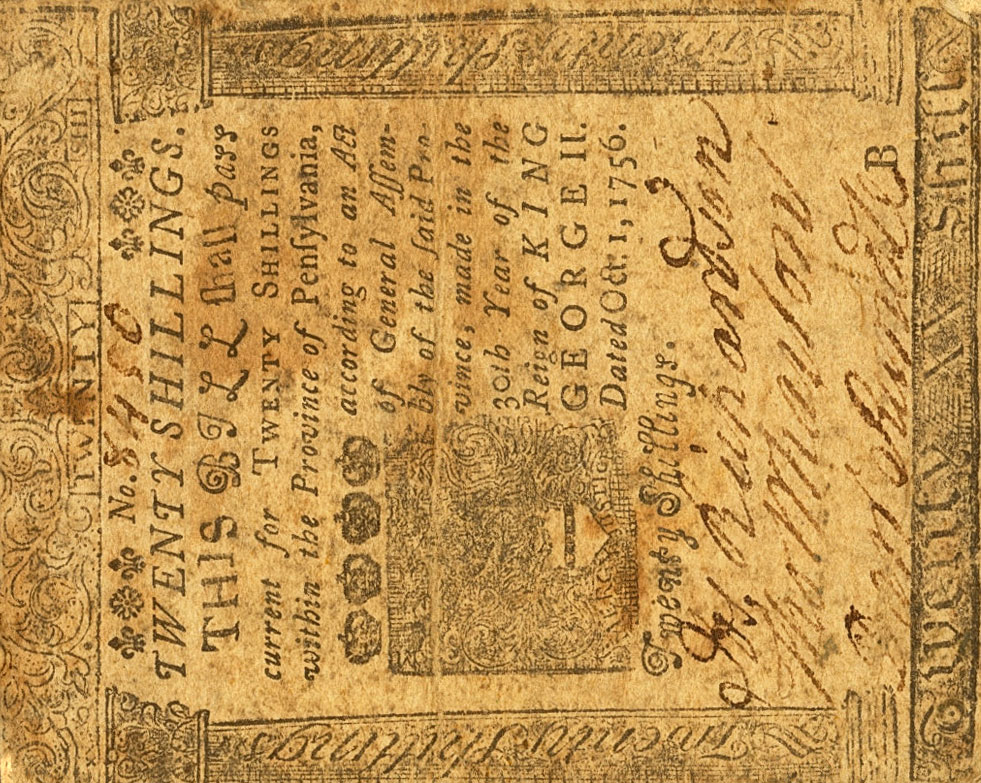 TWENTY
No. 8450
TWENTY SHILLINGS.
THIS BILL ſhall paſs
current for TWENTY SHILLINGS
within the Province of Penſylvania,
according to an Act
of General Aſſem-
bly of the ſaid Pro-
vince, made in the
30th Year of the
Reign of KING
GEORGE II.
Dated Oct. 1, 1756.
Twenty Shillings.
B
Twenty Shillings
Twenty Shillings
Twenty Shillings